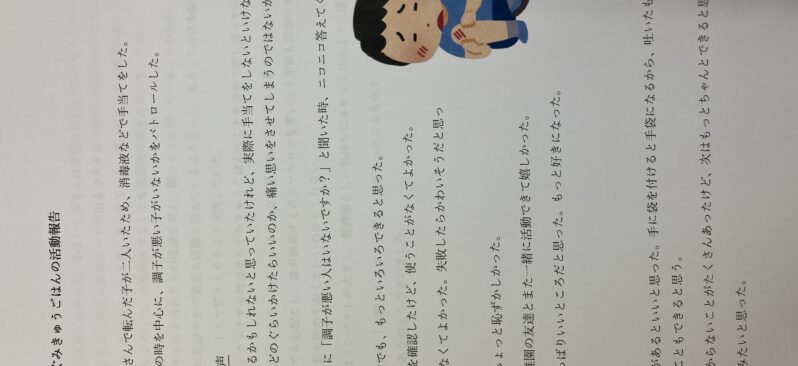 ぐみきゅうごはんの活動報告
さんで転んだ子が二人いたため、消毒液などで手当てをした。
の時を中心に、調子が悪い子がいないかをパトロールした。
声
るかもしれないと思っていたけれど、実際に手当てをしないといけな
どのぐらいかけたらいいのか、痛い思いをさせてしまうのではないか
に「調子が悪い人はいないですか？」と聞いた時、ニコニコ答えてく
でも、もっといろいろできると思った。
を確認したけど、使うことがなくてよかった。
なくてよかった。失敗したらかわいそうだと思っ
ょっと恥ずかしかった。
稚園の友達とまた一緒に活動できて嬉しかった。
っぱりいいところだと思った。もっと好きになった。
があるといいと思った。手に袋を付けると手袋になるから、吐いたも
こともできると思う。
からないことがたくさんあったけど、次はもっとちゃんとできると思
みたいと思った。